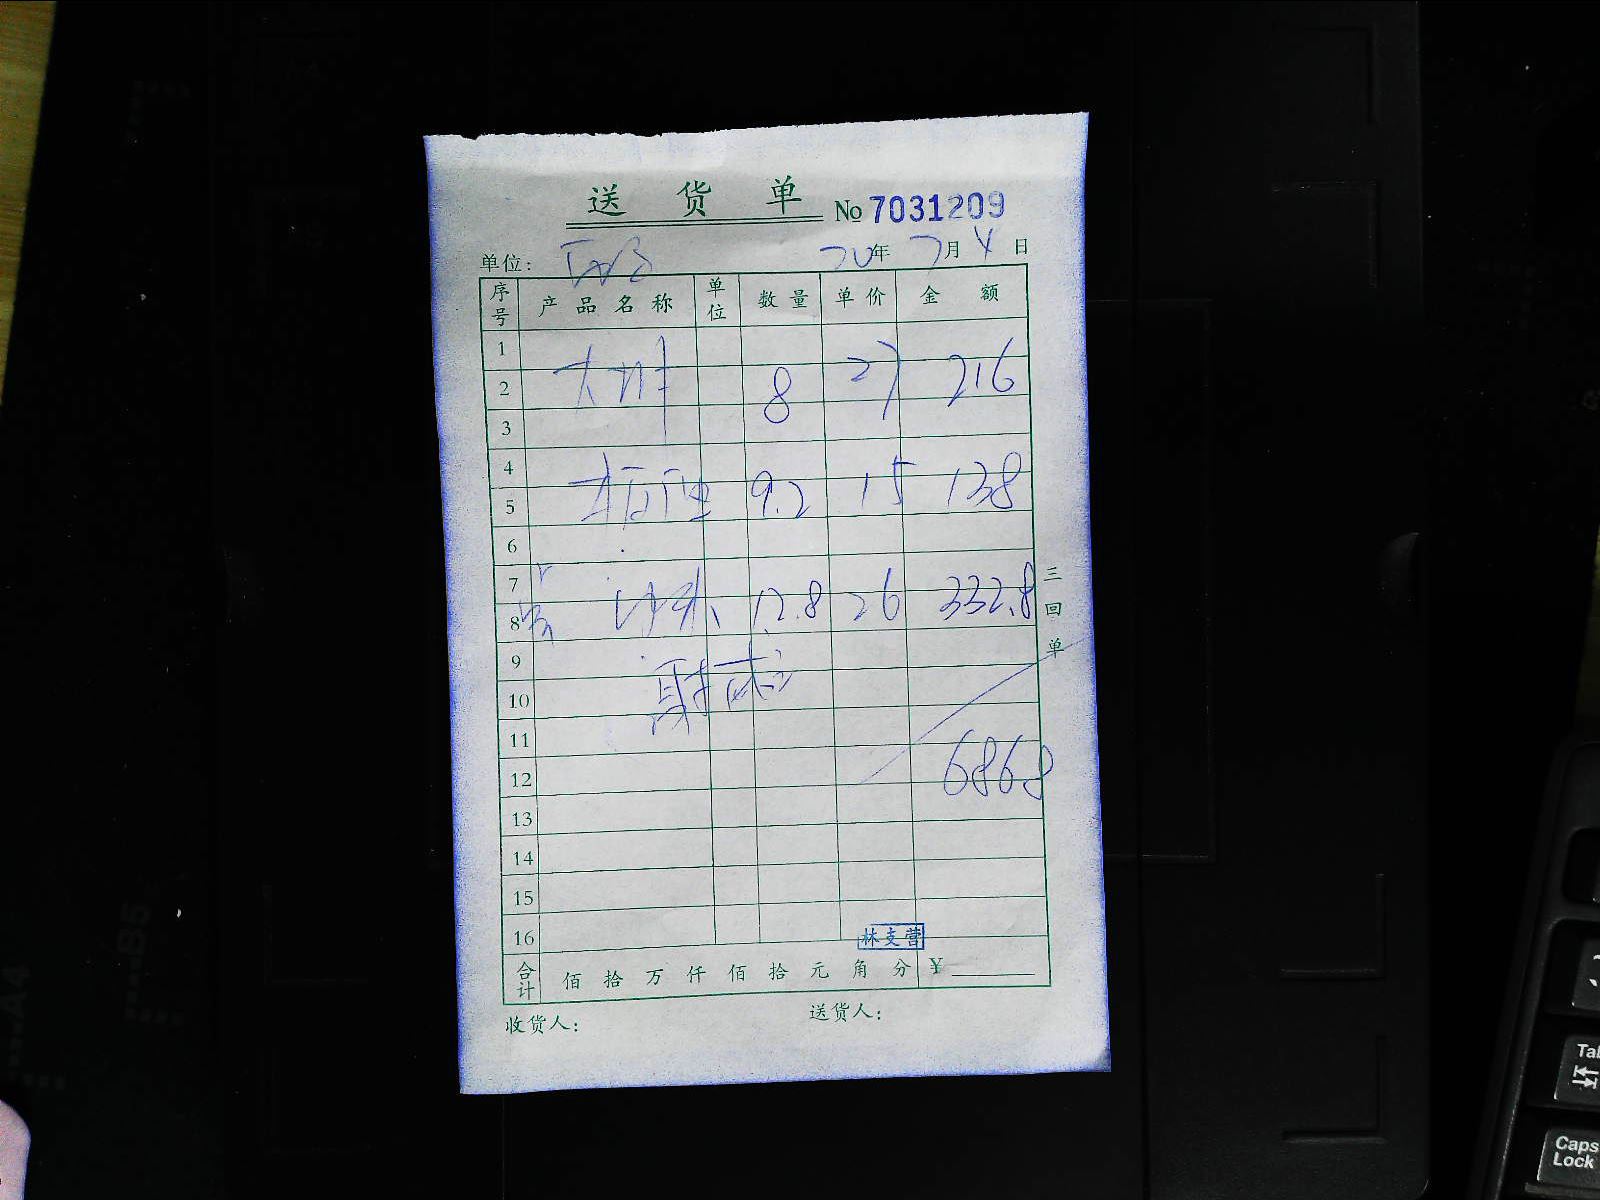 送 货 单 № 7031209
单位: 20年 7月 4日
序号 产品名称 单位 数量 单价 金额
1
2 8 27 216
3
4
5 9.2 15 138
6
7
8 12.8 26 332.8
9
10
11
12 6868
13
14
15
16
林支营
合计 佰 拾 万 仟 佰 拾 元 角 分 ¥
收货人: 送货人:
三回单
A4
B5
Tab
Caps Lock